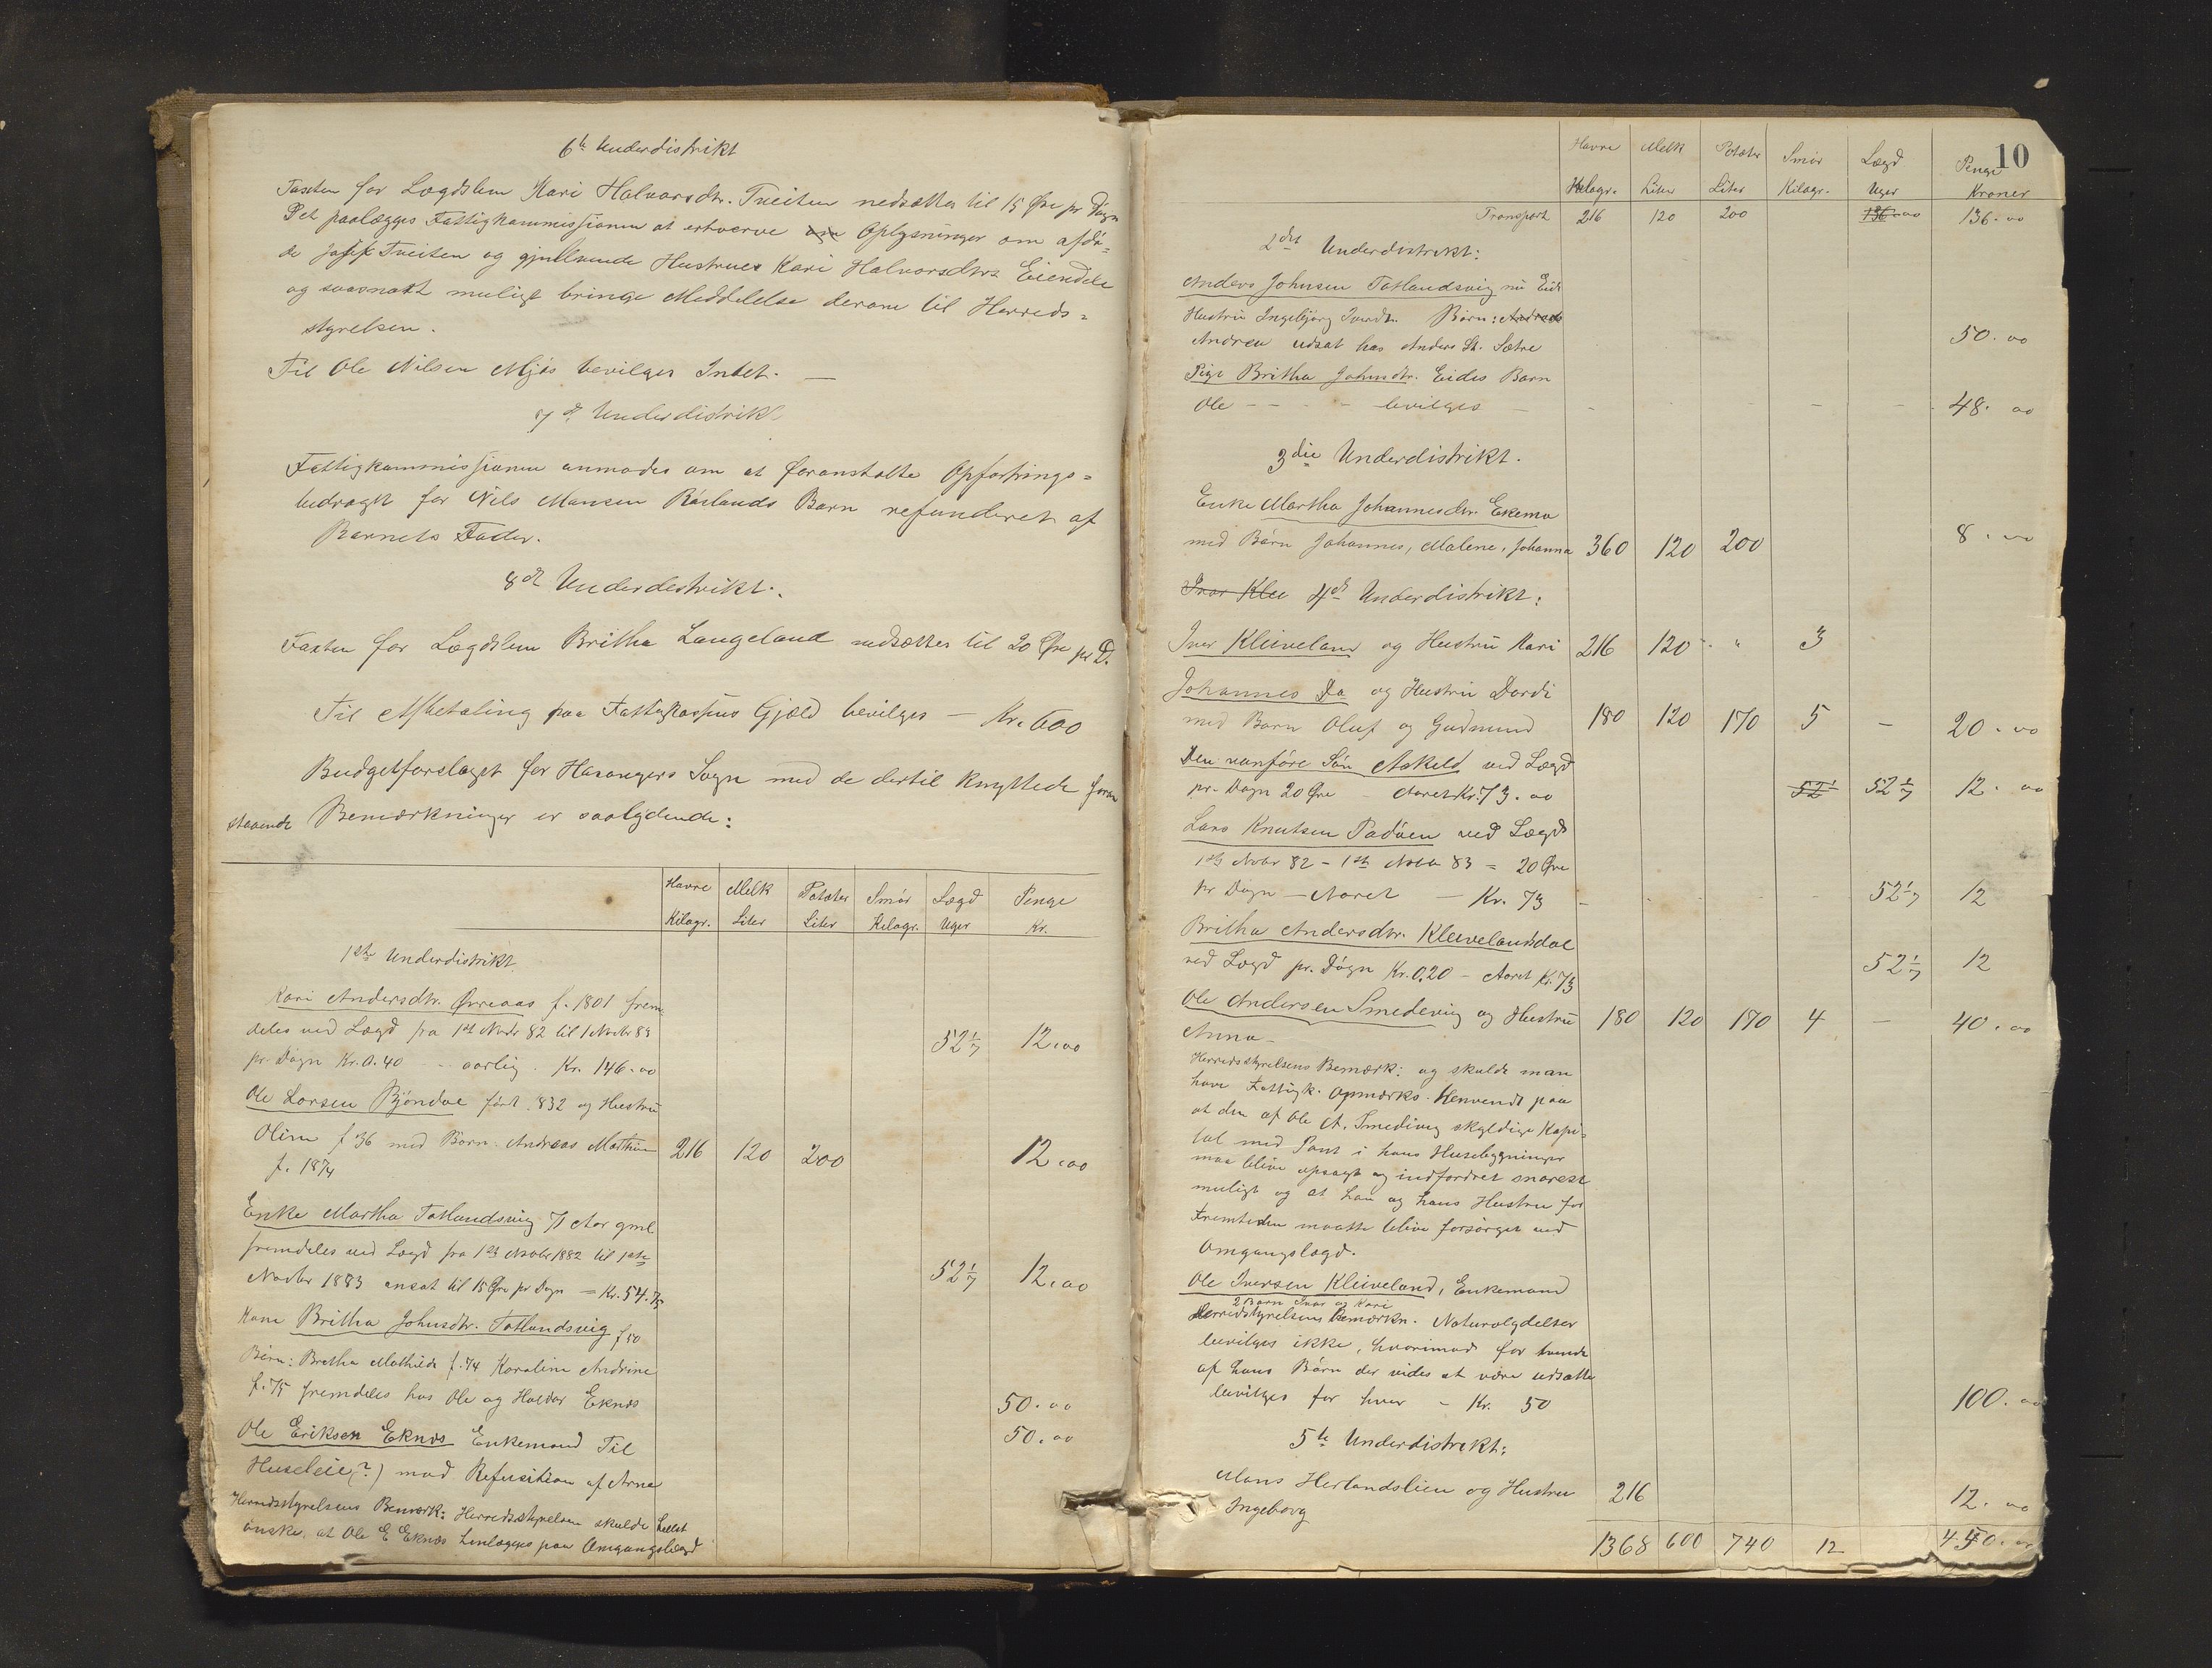 6te Underdistrikt
Taxten for Lægdslem Kari Halvorsdtr. Tveiten nedsættes til 15 Øre pr Døgn
Det paalægges Fattigkommissionen at erhverve om Oplysninger om afdø-
de Josef Tveiten og gjenlevende Hustrues Kari Halvorsdtrs Eiendele
og saasnart muligt bringe Meddelelse derom til Herreds-
styrelsen.
Til Ole Nilsen Mjøs bevilges Intet. —
7de Underdistrikt
Fattigkommissionen anmodes om at foranstalte Opfostrings-
bidraget for Nils Monsen Røslands Barn refunderet af
Barnets Fader.
8de Underdistrikt.
Taxten for Lægdslem Britha Langeland nedsættes til 20 Øre pr D.
Til Afbetaling paa Fattigkassens Gjæld bevilges — Kr. 600
Budgetforslaget for Hosangers Sogn med de dertil knyttede foran
staaende Bemærkninger er saalydende:
Havre Melk Poteter Smør Lægd Penge
Kilogr. Liter Liter Kilogr. Uger Kr.
1ste Underdistrikt
Kari Andersdtr. Ørreaas f. 1801 frem-
deles ved Lægd fra 1st Novbr 82 til 1 Novbr 83 52 1/7 12.00
pr. Døgn Kr. 0.40 - - aarlig. Kr. 146.00
Ole Larsen Bjøndal født 1832 og Hustru
Oline f 36 med Børn Andreas Mathias 216 120 200 12.00
f. 1874
Enke Martha Totlandsvig 71 Aar gml.
fremdeles ved Lægd fra 1st Novbr 1882 til 1ste
Novbr 1883 ansat til 15 Øre pr Døgn = Kr. 54.75 52 1/7 12.00
Kone Britha Johnsdtr. Totlandsvig f 50
Børn: Bretha Mathilde f. 74 Karoline Andrine
f. 75 fremdeles hos Ole og Haldor Eknes 50.00
Ole Eriksen Eknes Enkemand Til 50.00
Huseleie(?) mod Refusition af Arne
Herredsstyrelsens Bemærk: Herredsstyrelsen skulde helst
ønske, at Ole E Eknes henlægges paa Omgangslægd
10
Havre Melk Poteter Smør Lægd Penge
Kilogr. Liter Liter Kilogr. Uger Kroner
Transport 216 120 200 136.00 136.00
2det Underdistrikt:
Anders Johnsen Totlandsvig nu Eide
Hustru Ingebjørg Iversdtr. Børn: Andreas
Andrea udsat hos Anders St. Sætre 50.00
Pige Britha Johnsdtr. Eides Barn
Ole - - - - bevilges - 48.00
3die Underdistrikt.
Enke Martha Johannesdtr. Ekemo
med Børn Johannes, Malene, Johanna 360 120 200 8.00
Ivar Klei 4de Underdistrikt:
Iver Kleiveland og Hustru Kari 216 120 " 3
Johannes Do og Hustru Dordi
med Børn Oluf og Gudmund 180 120 170 5 — 20.00
Den vanføre Søn Askeld ved Lægd
pr. Døgn 20 Øre - Aaret Kr. 73.00 52 52 1/7 12.00
Lars Knutsen Padøen ved Lægd
1ste Novbr 82 - 1ste Novbr 83 = 20 Øre
pr Døgn — Aaret — Kr. 73 52 1/7 12
Britha Andersdtr. Kleivelandsdal
ved Lægd pr. Døgn Kr. 0.20 - Aaret Kr. 73 52 1/7 12
Ole Andersen Smedevig og Hustru 180 120 170 4 — 40.00
Anna -
Herredsstyrelsens Bemærk: og skulde man
have Fattigk. Opmærks. Henvendt paa
at den af Ole A. Smedevig skyldige Kapi-
tal med Pant i hans Husebygninger
maa blive opsagt og indfordret snarest
muligt og at han og hans Hustru for
Fremtiden maatte blive forsørget ved
Omgangslægd.
Ole Iversen Kleiveland, Enkemand
2 Børn Ivar og Kari
Herredsstyrelsens Bemærkn. Naturalydelser
bevilges ikke, hvorimod for tvende
af hans Børn der vides at være udsatte
bevilges for hver - Kr. 50 100.00
5te Underdistrikt:
Mons Herlandslien og Hustru 216 12.00
Ingeborg
1368 600 740 12 450.00